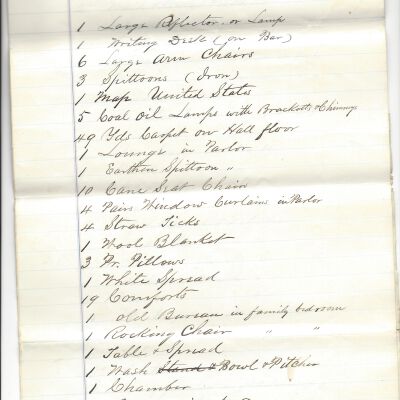 1 Large Reflector or Lamp
1 Writing Desk (on Bar)
6 Large Arm Chairs
3 Spittoons (Iron)
1 Map United States
5 Coal Oil Lamps with Bracketts & Chimneys
49 Yds Carpet on Hall floor
1 Lounge in Parlor
1 Earthen Spittoon "
10 Cane Seat Chair
4 Pairs Window Curtains in Parlor
4 Straw Ticks
1 Wool Blanket
3 Pr. Pillows
1 White Spread
19 Comforts
1 old Bureau in family bedroom
1 Rocking Chair " "
1 Table & Spread
1 Wash Stand & Bowl & Pitcher
1 Chamber